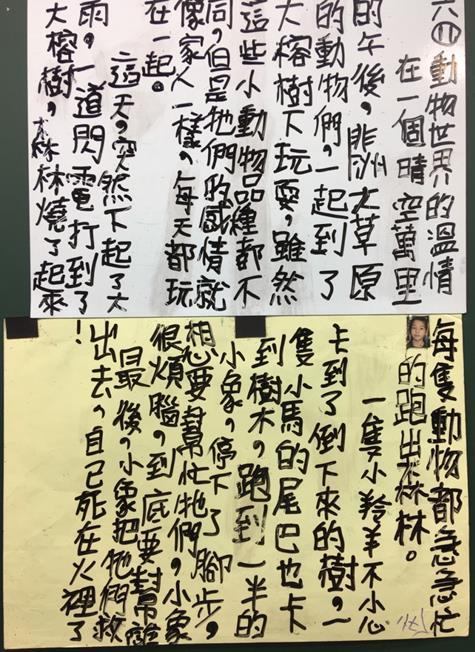 六⑪動物世界的溫情
在一個晴空萬里
的午後，非洲大草原
的動物們，一起到了
大榕樹下玩耍，雖然
這些小動物品種都不
同，但是牠們的感情就
像家人一樣，每天都玩
在一起。
這天，突然下起了大
雨，一道閃電打到了
大榕樹，森林燒了起來
每隻動物都急急忙
的跑出森林。
一隻小羚羊不小心
卡到了倒下來的樹，一
隻小馬的尾巴也卡
到樹木，跑到一半的
小象，停下了腳步，
想要幫忙牠們，小象
很煩腦，到底要幫誰
最後，小象把牠們救
出去，自己死在火裡了
！